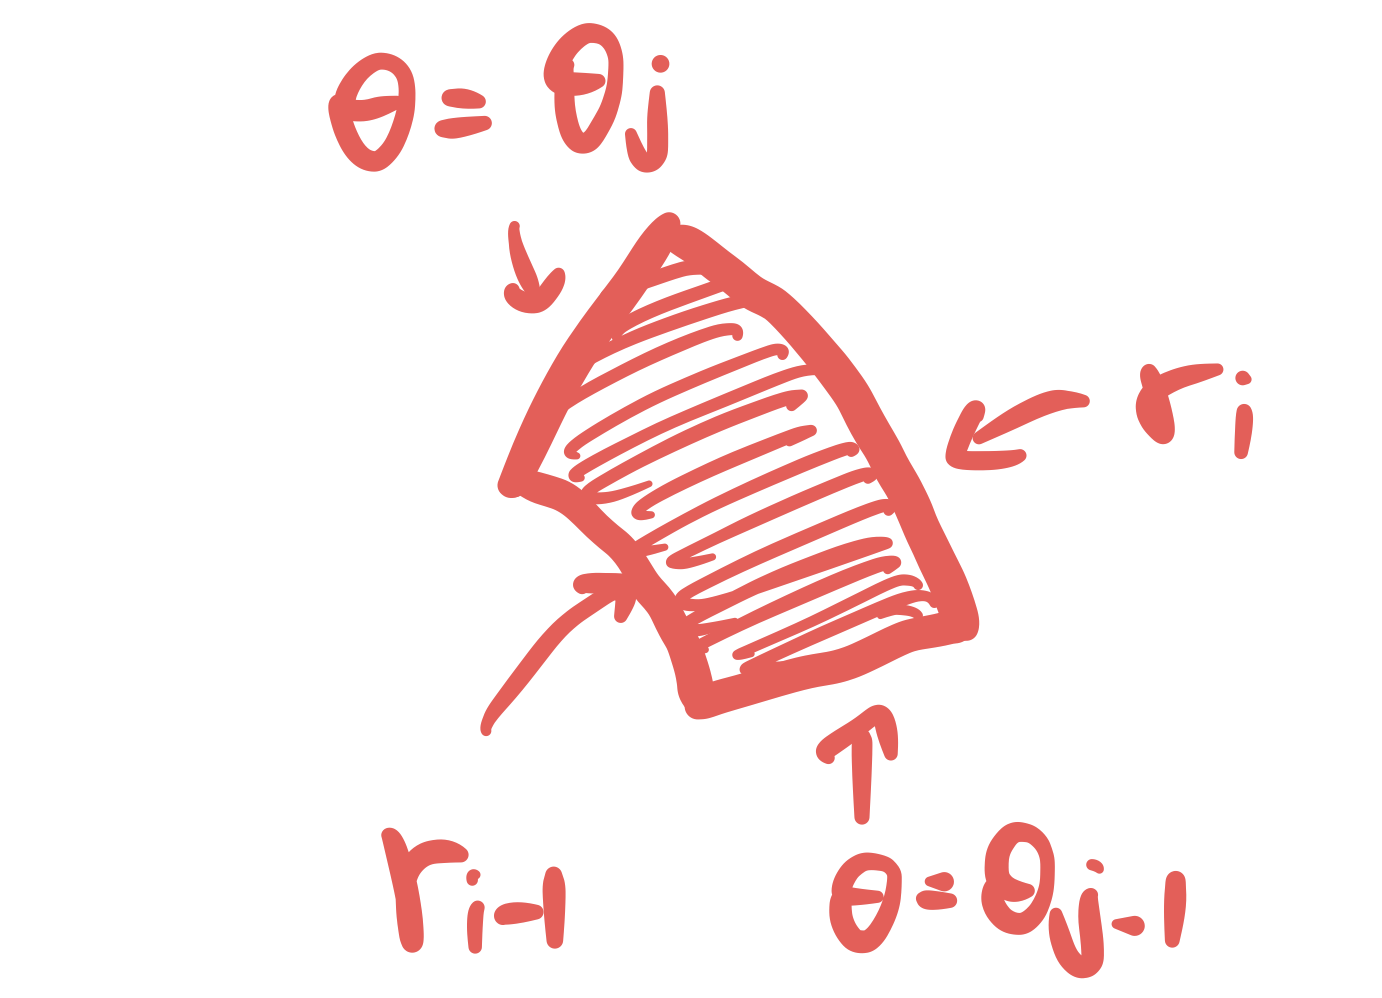 θ = θj
ri
ri-1
θ = θj-1